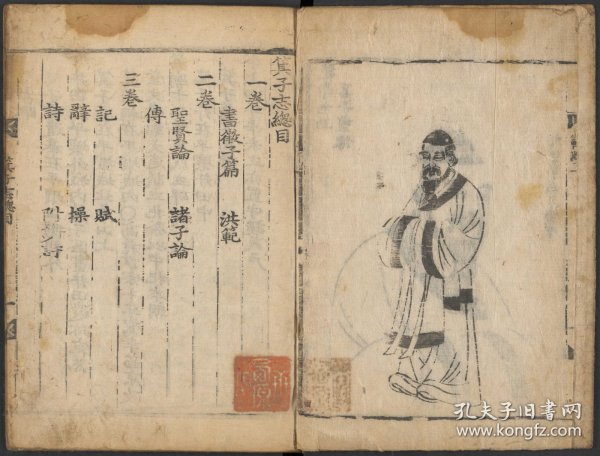 箕子志總目
一卷
書微子篇 洪範
二卷
聖賢論 諸子論
傳
三卷
記 賦
辭 操
詩 附衛詩
孔夫子旧书网
www.kongfz.com